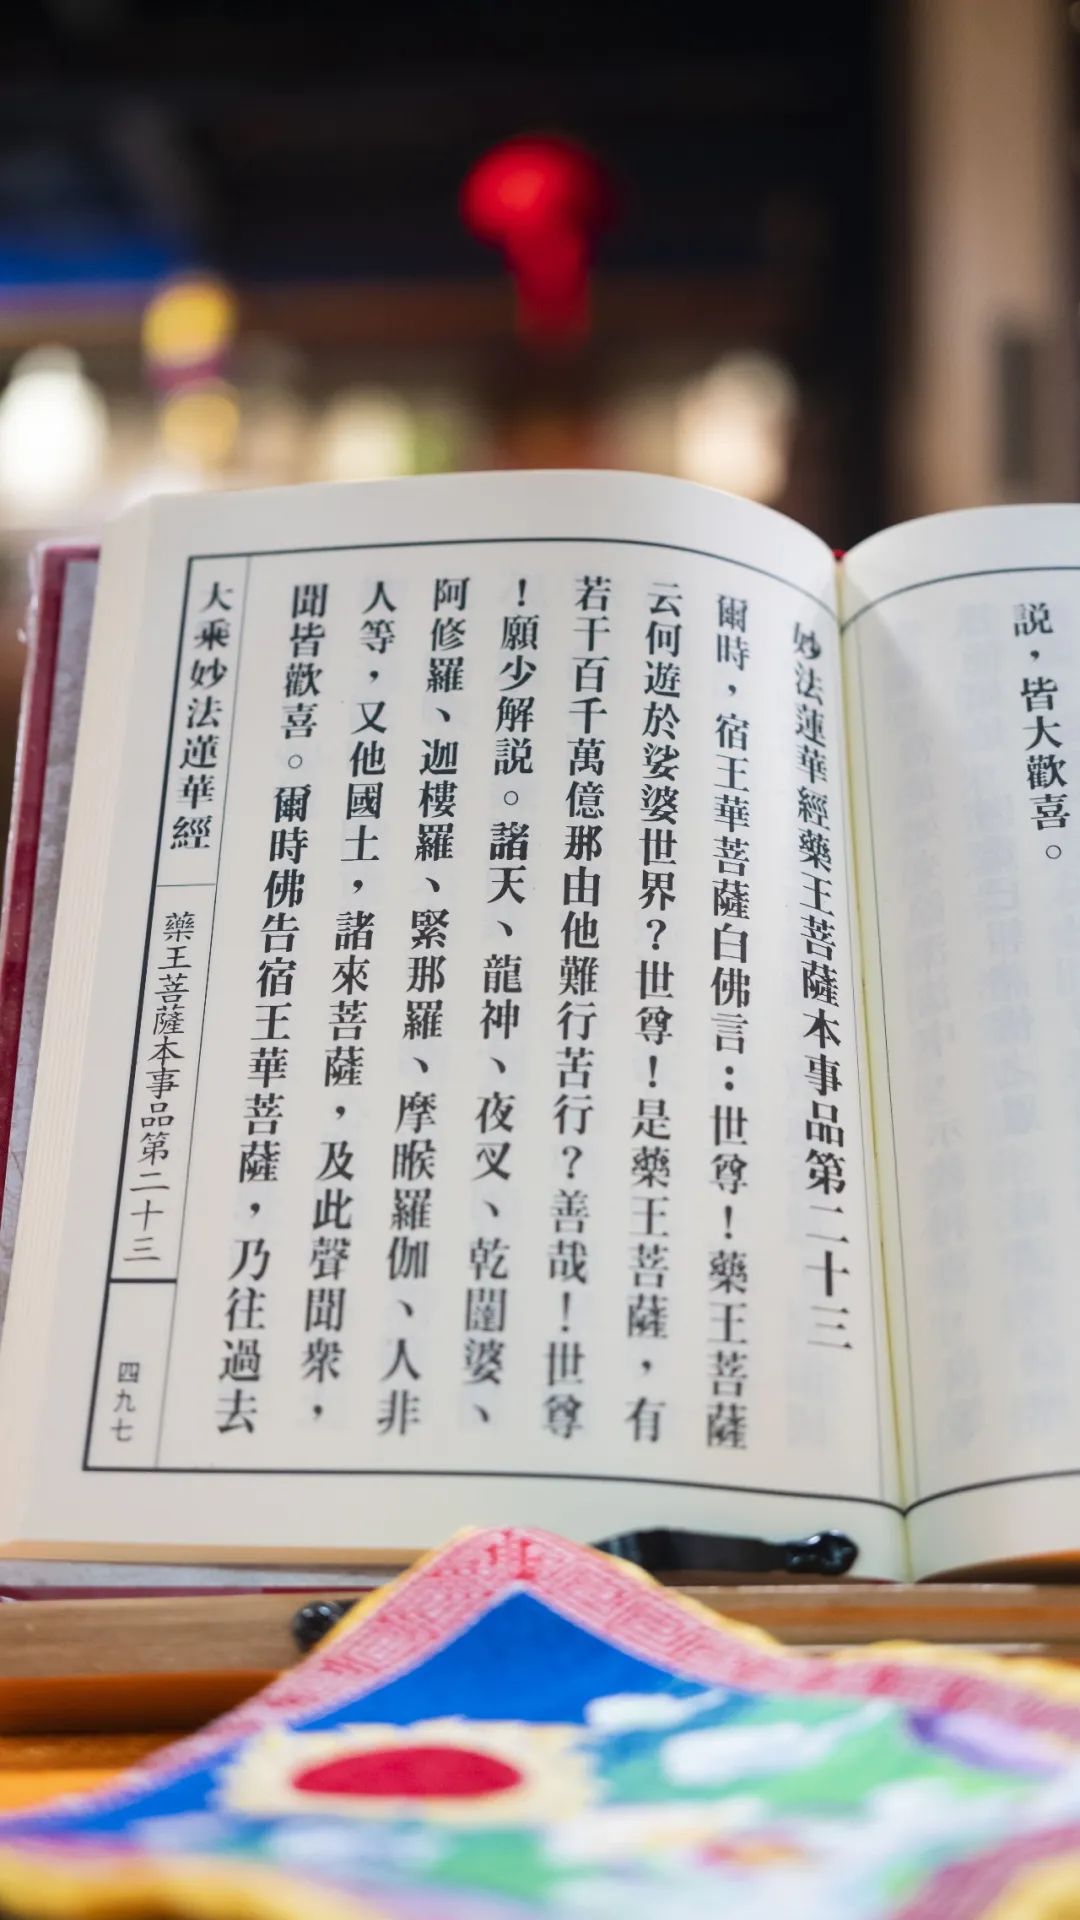 說，皆大歡喜。
妙法蓮華經藥王菩薩本事品第二十三
爾時，宿王華菩薩白佛言：世尊！藥王菩薩
云何遊於娑婆世界？世尊！是藥王菩薩，有
若干百千萬億那由他難行苦行？善哉！世尊
！願少解說。諸天、龍神、夜叉、乾闥婆、
阿修羅、迦樓羅、緊那羅、摩睺羅伽、人非
人等，又他國土，諸來菩薩，及此聲聞眾，
聞皆歡喜。爾時佛告宿王華菩薩，乃往過去
大乘妙法蓮華經
藥王菩薩本事品第二十三
四九七